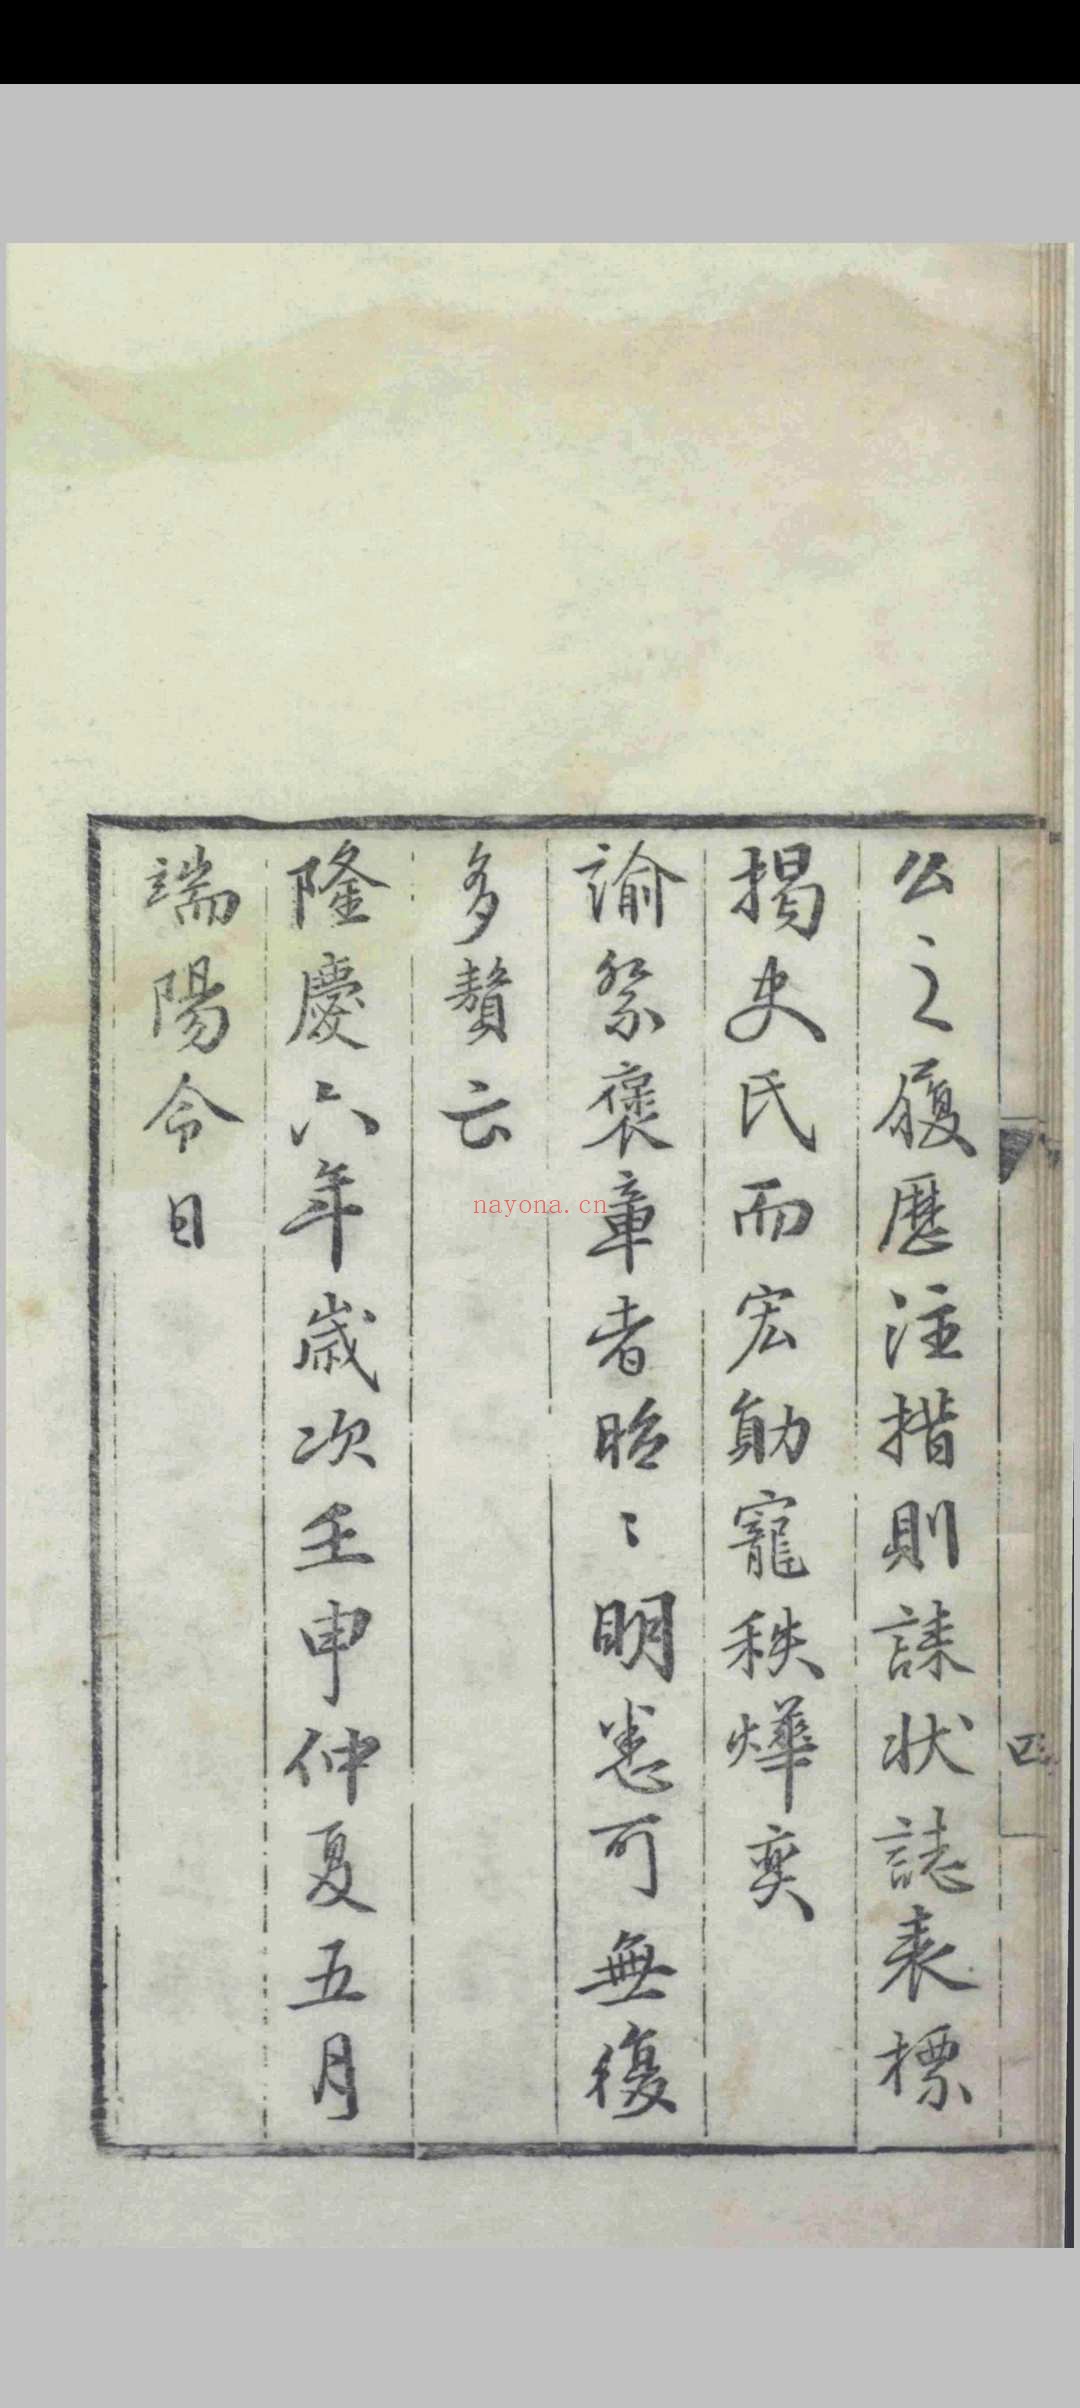 公之履歷注措則誄狀誌表標
揭史氏而宏勛寵秩燁奕
諭祭褒章者昭〻明悉可無復
多贅云
隆慶六年歲次壬申仲夏五月
端陽令日
四
nayona.cn